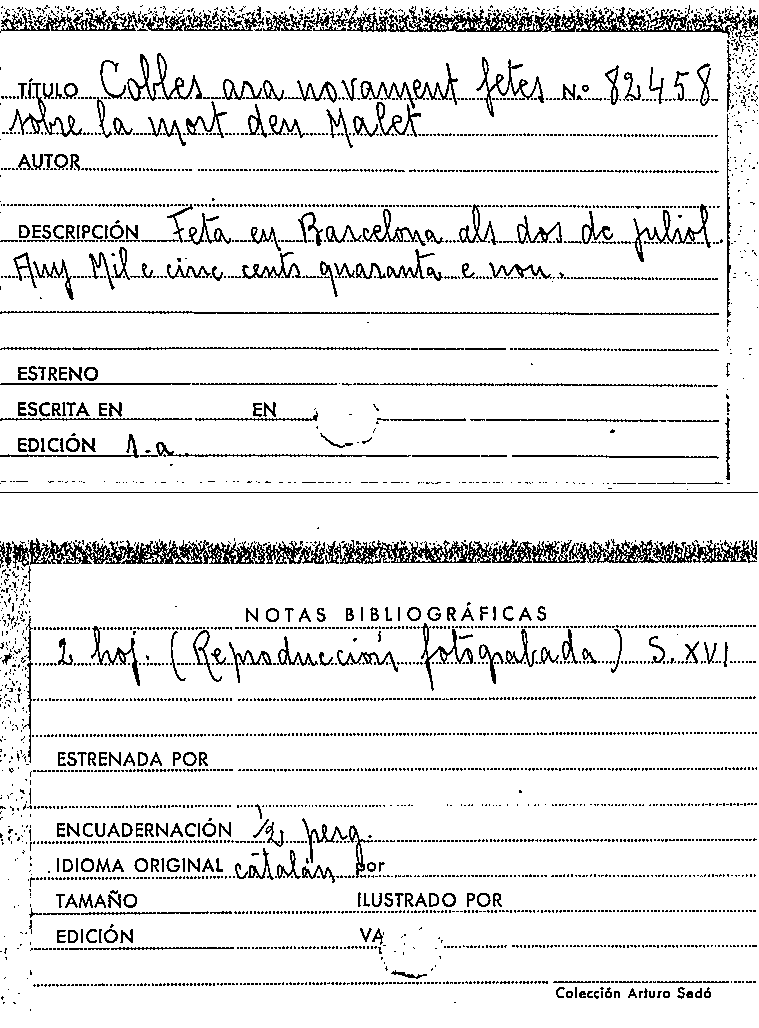 TÍTULO Cobles ara novament fetes N.º 82458
sobre la mort den Malet
AUTOR
DESCRIPCIÓN Feta en Barcelona als dos de juliol.
Any Mil e cinc cents quaranta e nou.
ESTRENO
ESCRITA EN EN
EDICIÓN 1.a.
NOTAS BIBLIOGRÁFICAS
2 hoj. (Reproducción fotograbada) S. XVI
ESTRENADA POR
ENCUADERNACIÓN 1/2 perg.
IDIOMA ORIGINAL catalán por
TAMAÑO ILUSTRADO POR
EDICIÓN VA
Colección Arturo Sedó